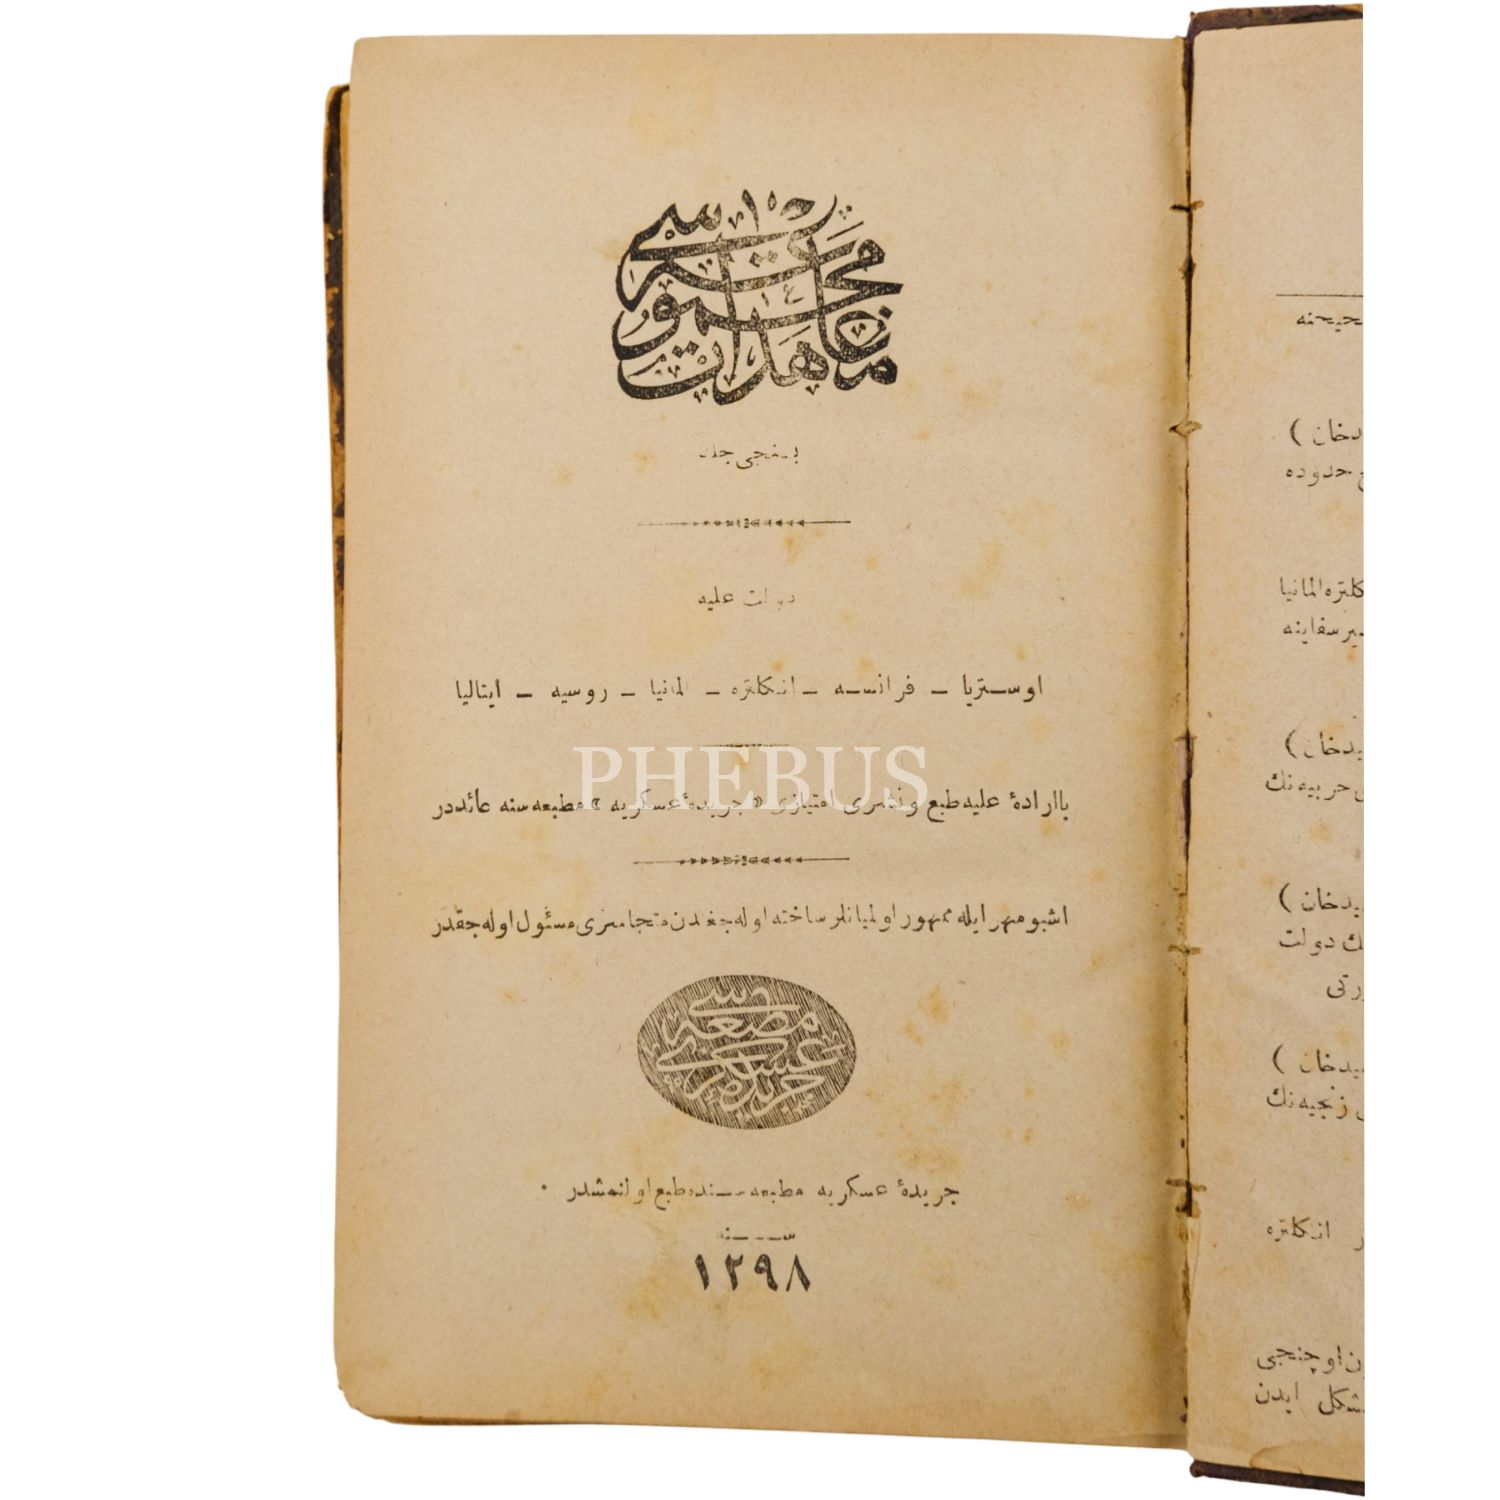 معاهدات مجموعه سی
بشنجی جلد
دولت علیه
اوستریا – فرانسه – انکلتره – المانیا – روسیه – ایتالیا
PHEBUS
باارادهٔ علیه طبع و نشری امتیازی «جریدهٔ عسکریه» مطبعه سنه عائددر
اشبو مهر ایله ممهور اولمیانلر ساخته اوله جغندن متجاسری مسئول اوله جقدر
جریدهٔ عسکریه مطبعه سی
جریدهٔ عسکریه مطبعه سنده طبع اولنمشدر .
سنه
١٢٩٨
یدخان )
حدوده
کلتره المانیا
یرسفاینه
یدخان)
حربیه نك
یدخان )
ك دولت
رتی
یدخان )
زنجیه نك
ر انکلتره
ن اوچنجی
شکل ایدن